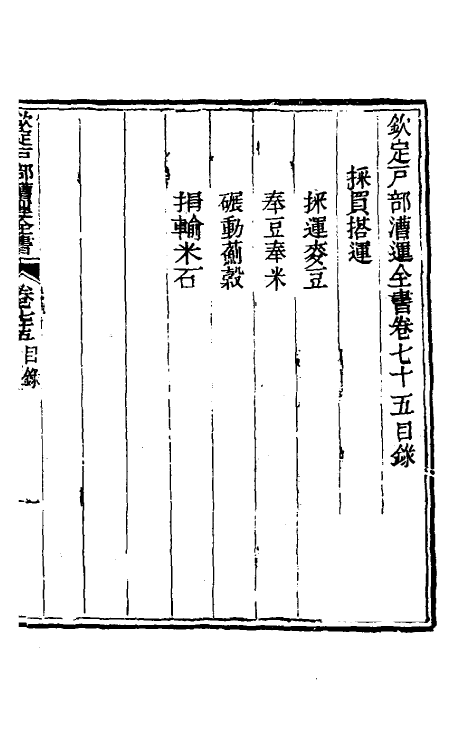 欽定戶部漕運全書卷七十五目錄
採買搭運
採運麥豆
奉豆奉米
碾動薊穀
捐輸米石
欽定戶部漕運全書
卷七十五目錄